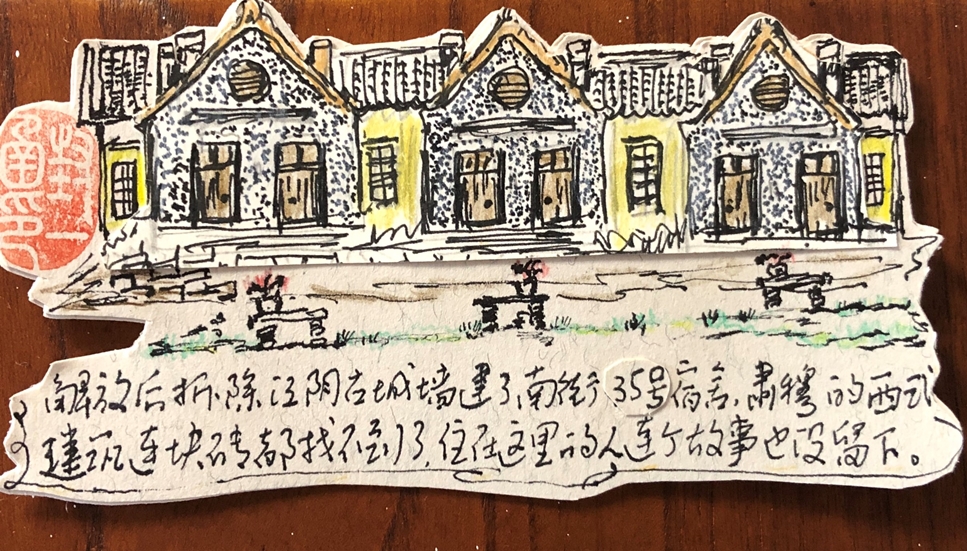 解放后拆除江阴古城墙建了南街35号宿舍,肃穆的西式
建筑连块砖都找不到了,住在这里的人连个故事也没留下。